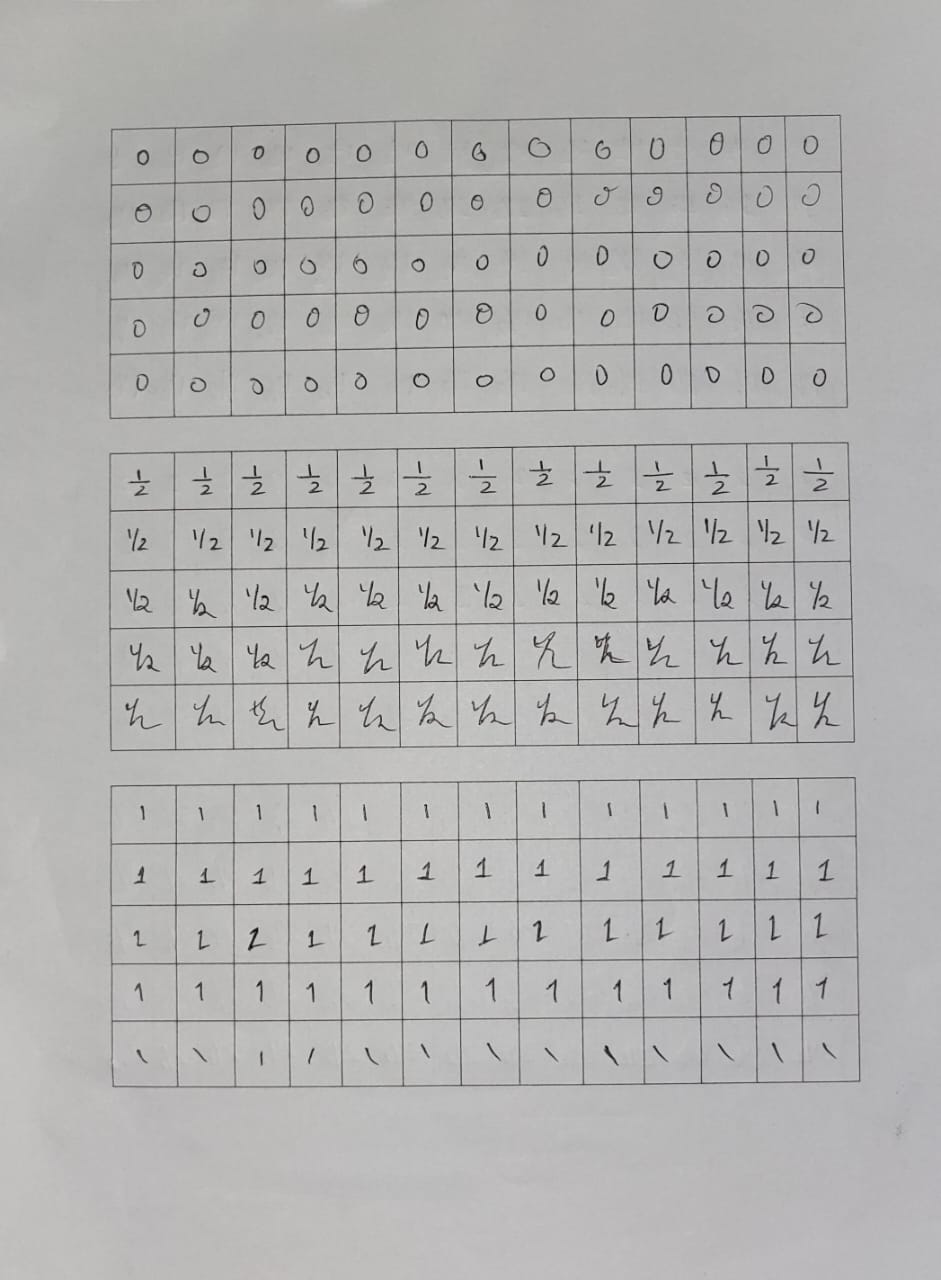 0 0 0 0 0 0 0 0 0 0 0 0 0
0 0 0 0 0 0 0 0 0 0 0 0 0
0 0 0 0 0 0 0 0 0 0 0 0 0
0 0 0 0 0 0 0 0 0 0 0 0 0
0 0 0 0 0 0 0 0 0 0 0 0 0
1/2 1/2 1/2 1/2 1/2 1/2 1/2 1/2 1/2 1/2 1/2 1/2 1/2
1/2 1/2 1/2 1/2 1/2 1/2 1/2 1/2 1/2 1/2 1/2 1/2 1/2
1/2 1/2 1/2 1/2 1/2 1/2 1/2 1/2 1/2 1/2 1/2 1/2 1/2
1/2 1/2 1/2 1/2 1/2 1/2 1/2 1/2 1/2 1/2 1/2 1/2 1/2
1/2 1/2 1/2 1/2 1/2 1/2 1/2 1/2 1/2 1/2 1/2 1/2 1/2
1 1 1 1 1 1 1 1 1 1 1 1 1
1 1 1 1 1 1 1 1 1 1 1 1 1
1 1 1 1 1 1 1 1 1 1 1 1 1
1 1 1 1 1 1 1 1 1 1 1 1 1
1 1 1 1 1 1 1 1 1 1 1 1 1